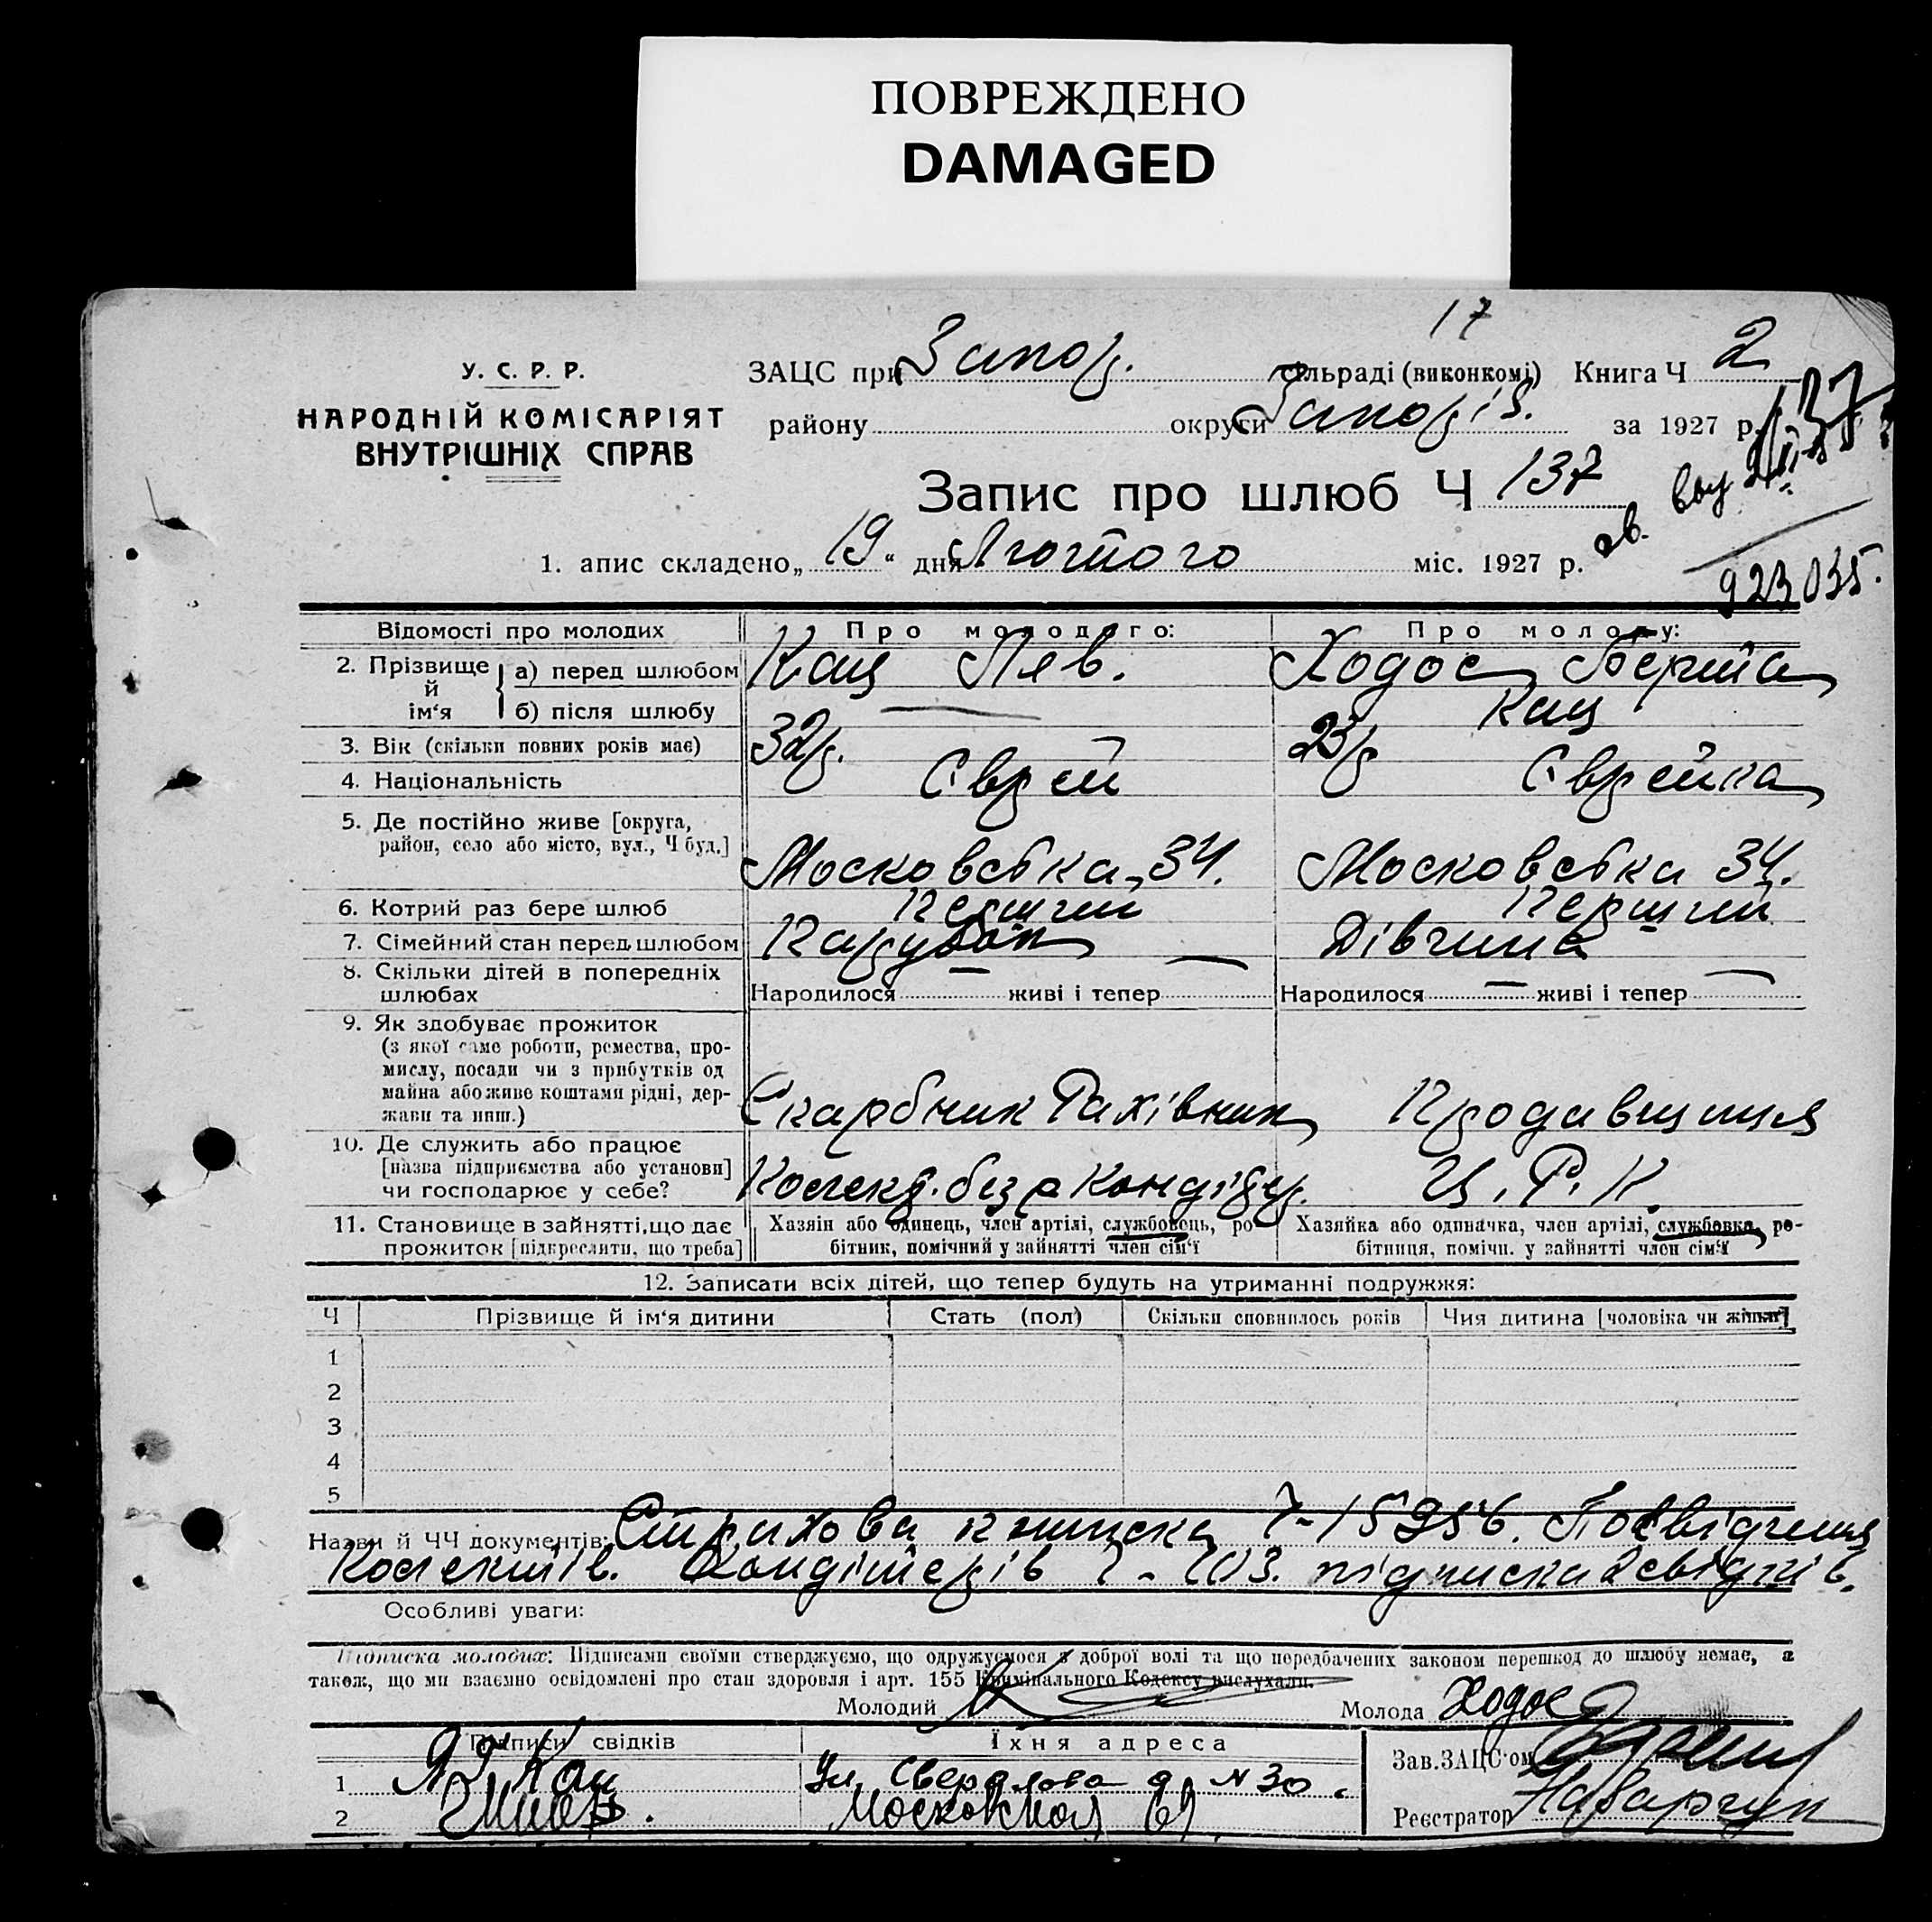 ПОВРЕЖДЕНО
DAMAGED
17
У. С. Р. Р.
НАРОДНІЙ КОМІСАРІЯТ
ВНУТРІШНІХ СПРАВ
ЗАЦС при Запор. сільраді (виконкомі) Книга Ч 2
району округи Запоріз. за 1927 р.
Запис про шлюб Ч 137
1. апис складено „19“ дня Лютого міс. 1927 р.
923035.
Відомості про молодих Про молодого: Про молоду:
2. Прізвище й ім‘я а) перед шлюбом Кац Лев. Ходос Берта
б) після шлюбу — Кац
3. Вік (скільки повних років має) 32р. 23р
4. Національність Єврей Єврейка
5. Де постійно живе [округа,
район, село або місто, вул., Ч буд.] Московська 34. Московська 34.
6. Котрий раз бере шлюб Перший Перший
7. Сімейний стан перед шлюбом Парубок Дівчина
8. Скільки дітей в попередніх
шлюбах Народилося — живі і тепер — Народилося — живі і тепер —
9. Як здобуває прожиток
(з якої саме роботи, ремества, про-
мислу, посади чи з прибутків од
майна або живе коштами рідні, дер-
жави та инш.) Скарбник Рахівник Продавщиця
10. Де служить або працює
[назва підприємства або установи]
чи господарює у себе? Ц. Р. К.
11. Становище в зайнятті, що дає
прожиток [підкреслити, що треба]
Хазяін або одинець, член артілі, службовець, ро
бітник, помічний у зайнятті член сім‘ї
Хазяйка або одиначка, член артілі, службовка, ро-
бітниця, помічн. у зайнятті член сім‘ї
12. Записати всіх дітей, що тепер будуть на утриманні подружжя:
Ч Прізвище й ім‘я дитини Стать (пол) Скільки сповнилось років Чия дитина [чоловіка чи жінки]
1
2
3
4
5
Назви й ЧЧ документів: Страхова книжка Посвідчення
Колектів. Кондітерів підписка 2 свідків.
Особливі уваги:
Підписка молодих: Підписами своїми стверджуємо, що одружуємося з доброї волі та що передбачених законом перешкод до шлюбу немає, а
також, що ми взаємно освідомлені про стан здоровля і арт. 155 Кримінального Кодексу вислухали.
Молодий Молода Ходос
Підписи свідків Їхня адреса Зав. ЗАЦС'ом
1 Кац Ул. Свердлова д N 30
2 Московская 69 Реєстратор